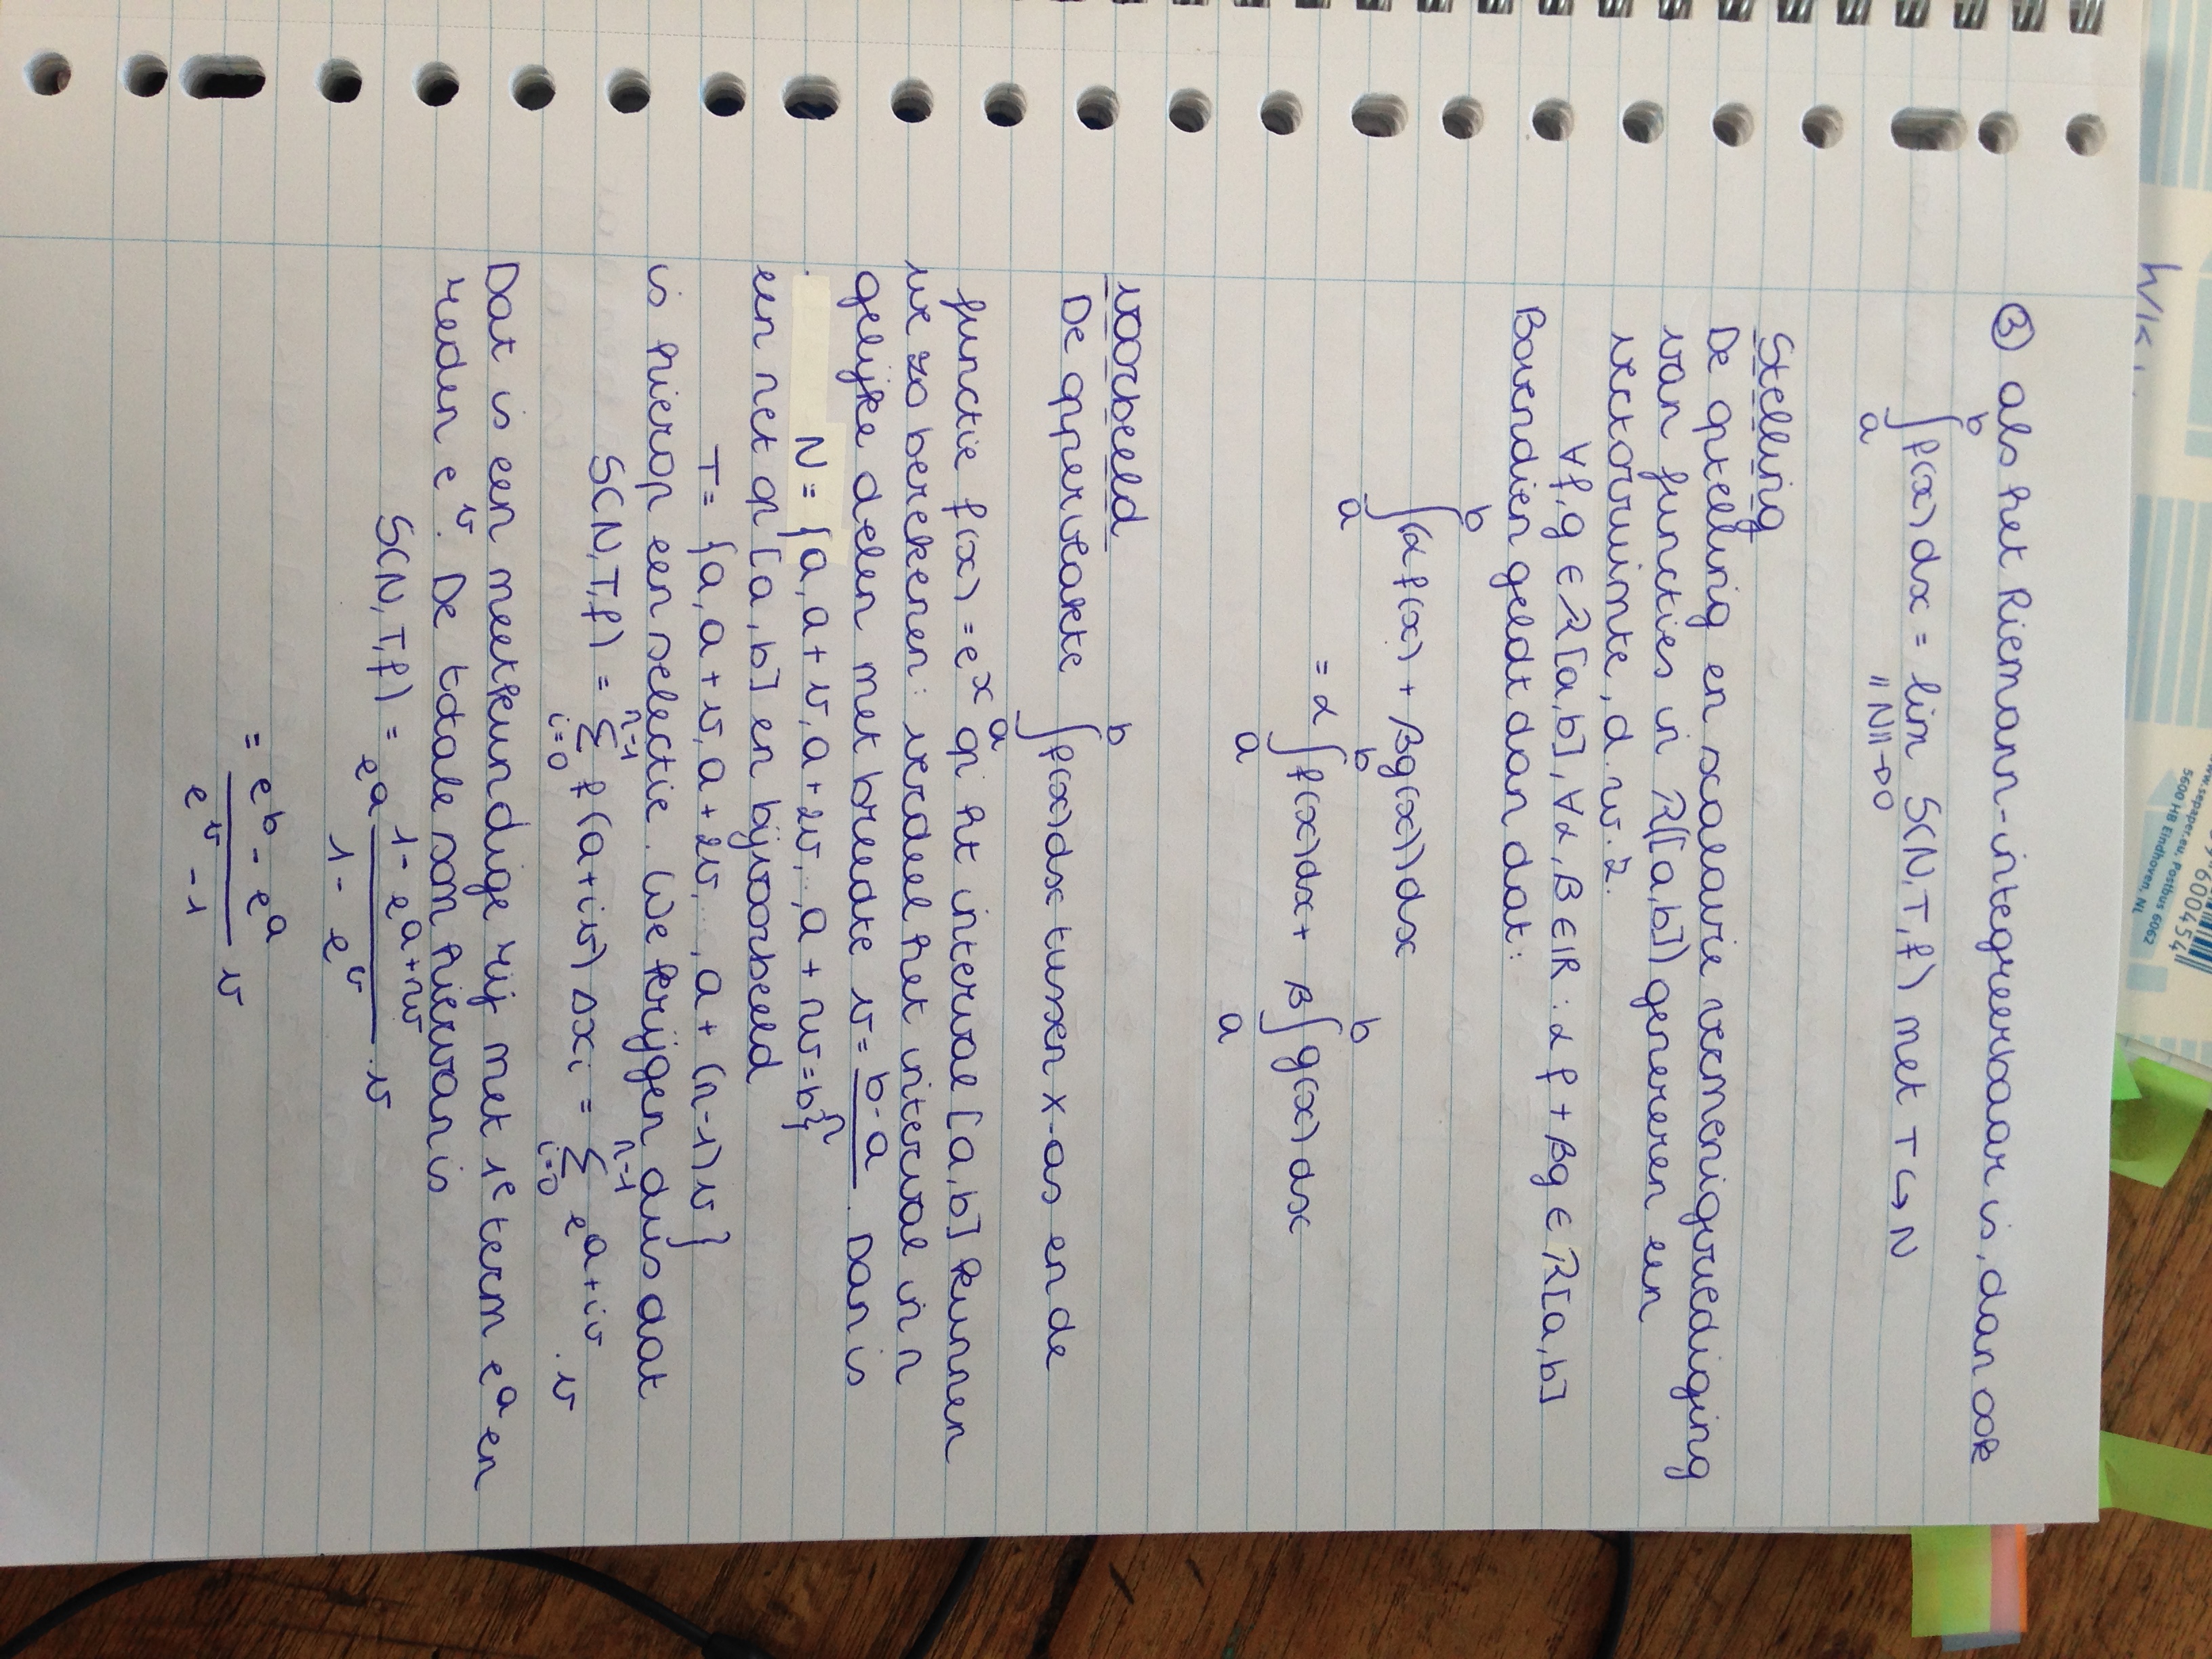 600454
www.sepaper.eu, Postbus 6062
5600 HB Eindhoven, NL
③ als het Riemann-integreerbaar is, dan ook
∫_a^b f(x) dx = lim_{||N||→0} S(N,T,f) met T ↪ N
Stelling
De optelling en scalaire vermenigvuldiging
van functies in ℛ([a,b]) genereren een
vectorruimte, d.w.z.
∀f,g ∈ ℛ[a,b], ∀α,β ∈ ℝ : αf + βg ∈ ℛ[a,b]
Bovendien geldt dan dat:
∫_a^b (αf(x) + βg(x)) dx
= α ∫_a^b f(x)dx + β ∫_a^b g(x) dx
voorbeeld
De oppervlakte ∫_a^b f(x)dx tussen x-as en de
functie f(x) = e^x op ht interval [a,b] kunnen
we zo berekenen: verdeel het interval in n
gelijke delen met breedte v = (b-a)/n. Dan is
N = {a, a+v, a+2v, .., a+nv=b}
een net op [a,b] en bijvoorbeeld
T = {a, a+v, a+2v, ..., a+(n-1)v}
is hierop een selectie. We krijgen dus dat
S(N,T,f) = Σ_{i=0}^{n-1} f(a+iv) Δx_i = Σ_{i=0}^{n-1} e^{a+iv} . v
Dat is een meetkundige rij met 1e term e^a en
reden e^v. De totale som hiervan is
S(N,T,f) = e^a (1 - e^{a+nv})/(1 - e^v) . v
= (e^b - e^a)/(e^v - 1) v